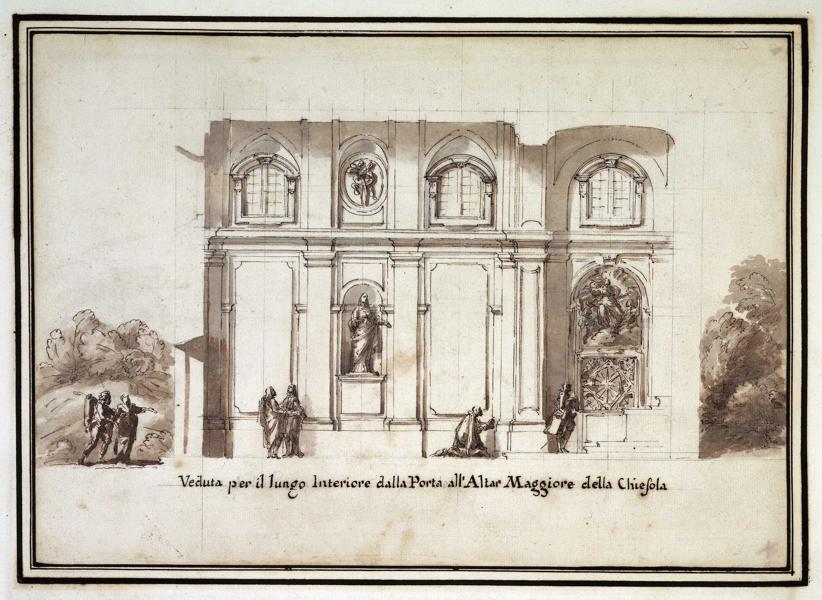 Veduta per il lungo Interiore dalla Porta all'Altar Maggiore della Chieſola